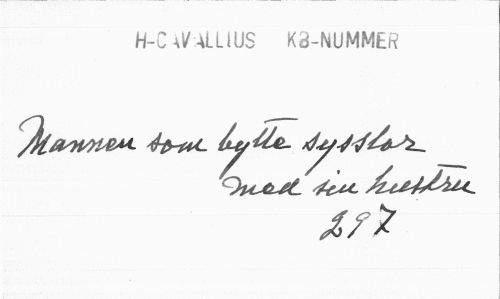 H-CAVALLIUS KB-NUMMER
Mannen som bytte sysslor
med sin hustru
297